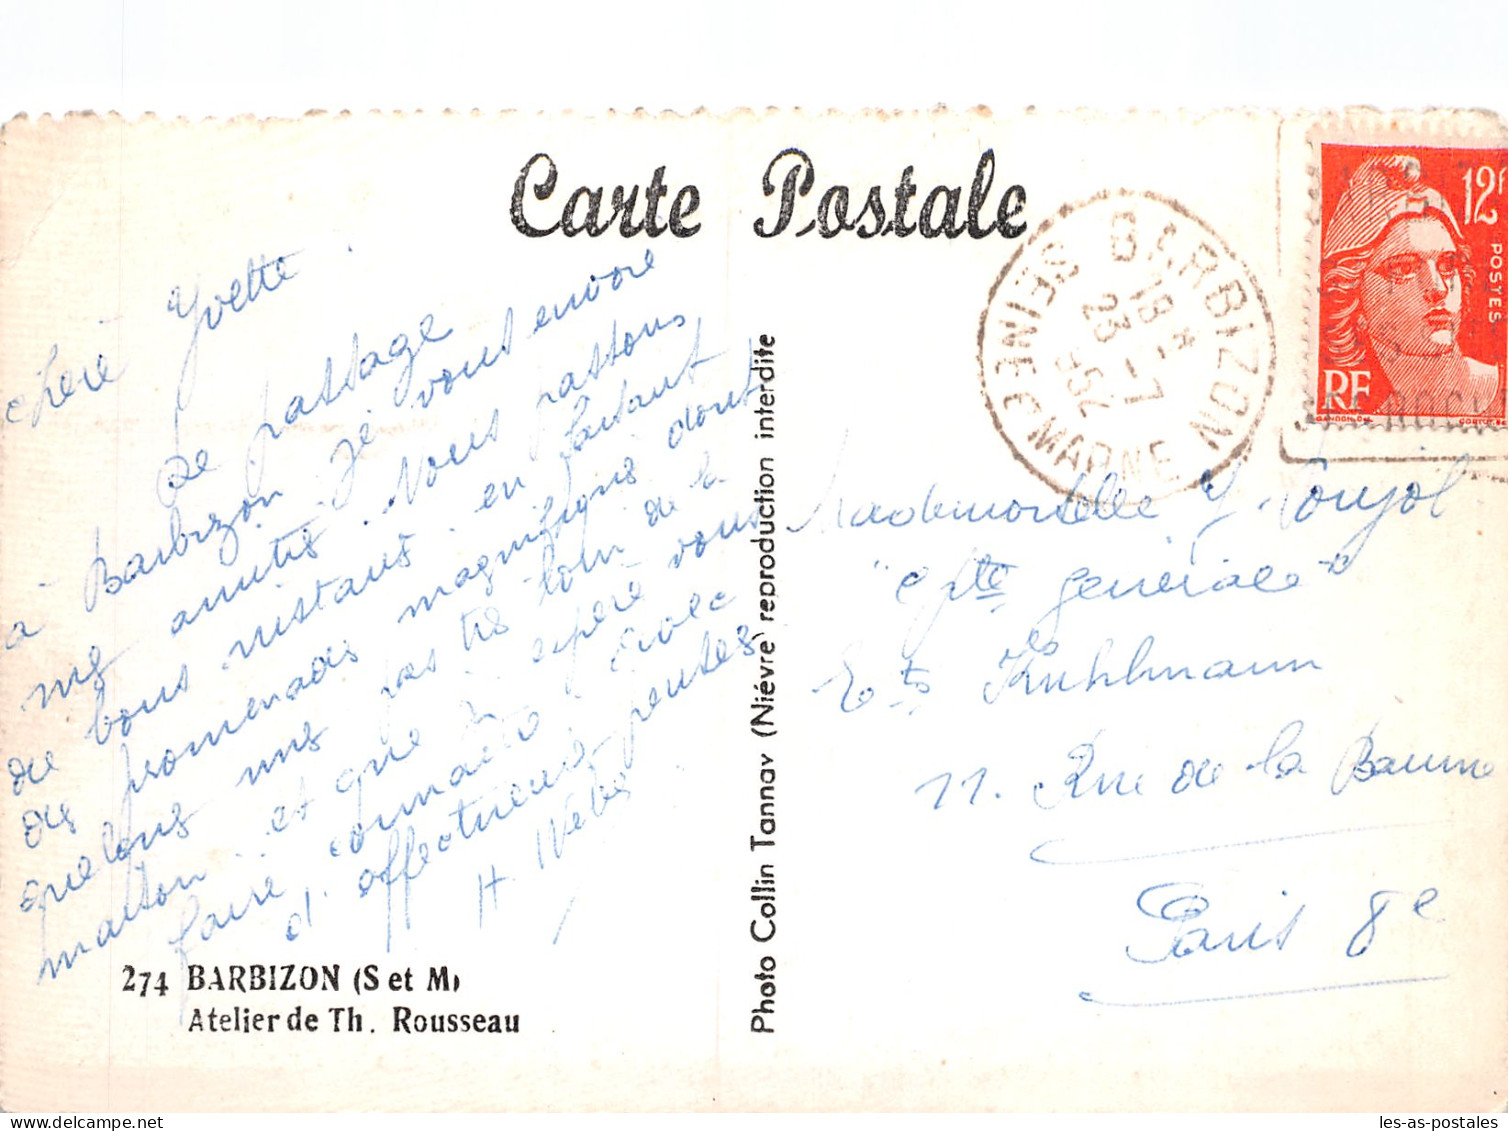 Carte Postale
chère Yvette
De passage
à Barbizon je vous envoie
mes amitiés. Nous passons
de bons instants en faisant
des promenades magnifiques dont
quelques unes pas très loin de la
maison et que j'espère vous
faire connaître. Avec
d'affectueuses pensées
H. Weber
274 BARBIZON (S et M)
Atelier de Th. Rousseau
Photo Collin Tannay (Nièvre) reproduction interdite
BARBIZON
SEINE ET MARNE
18 *
23 - 7
952
12f
POSTES
RF
GANDON
Mademoiselle Y. Poujol
"Cpté générale"
Ets Kuhlmann
11. Rue de la Baume
Paris 8e
les-as-postales